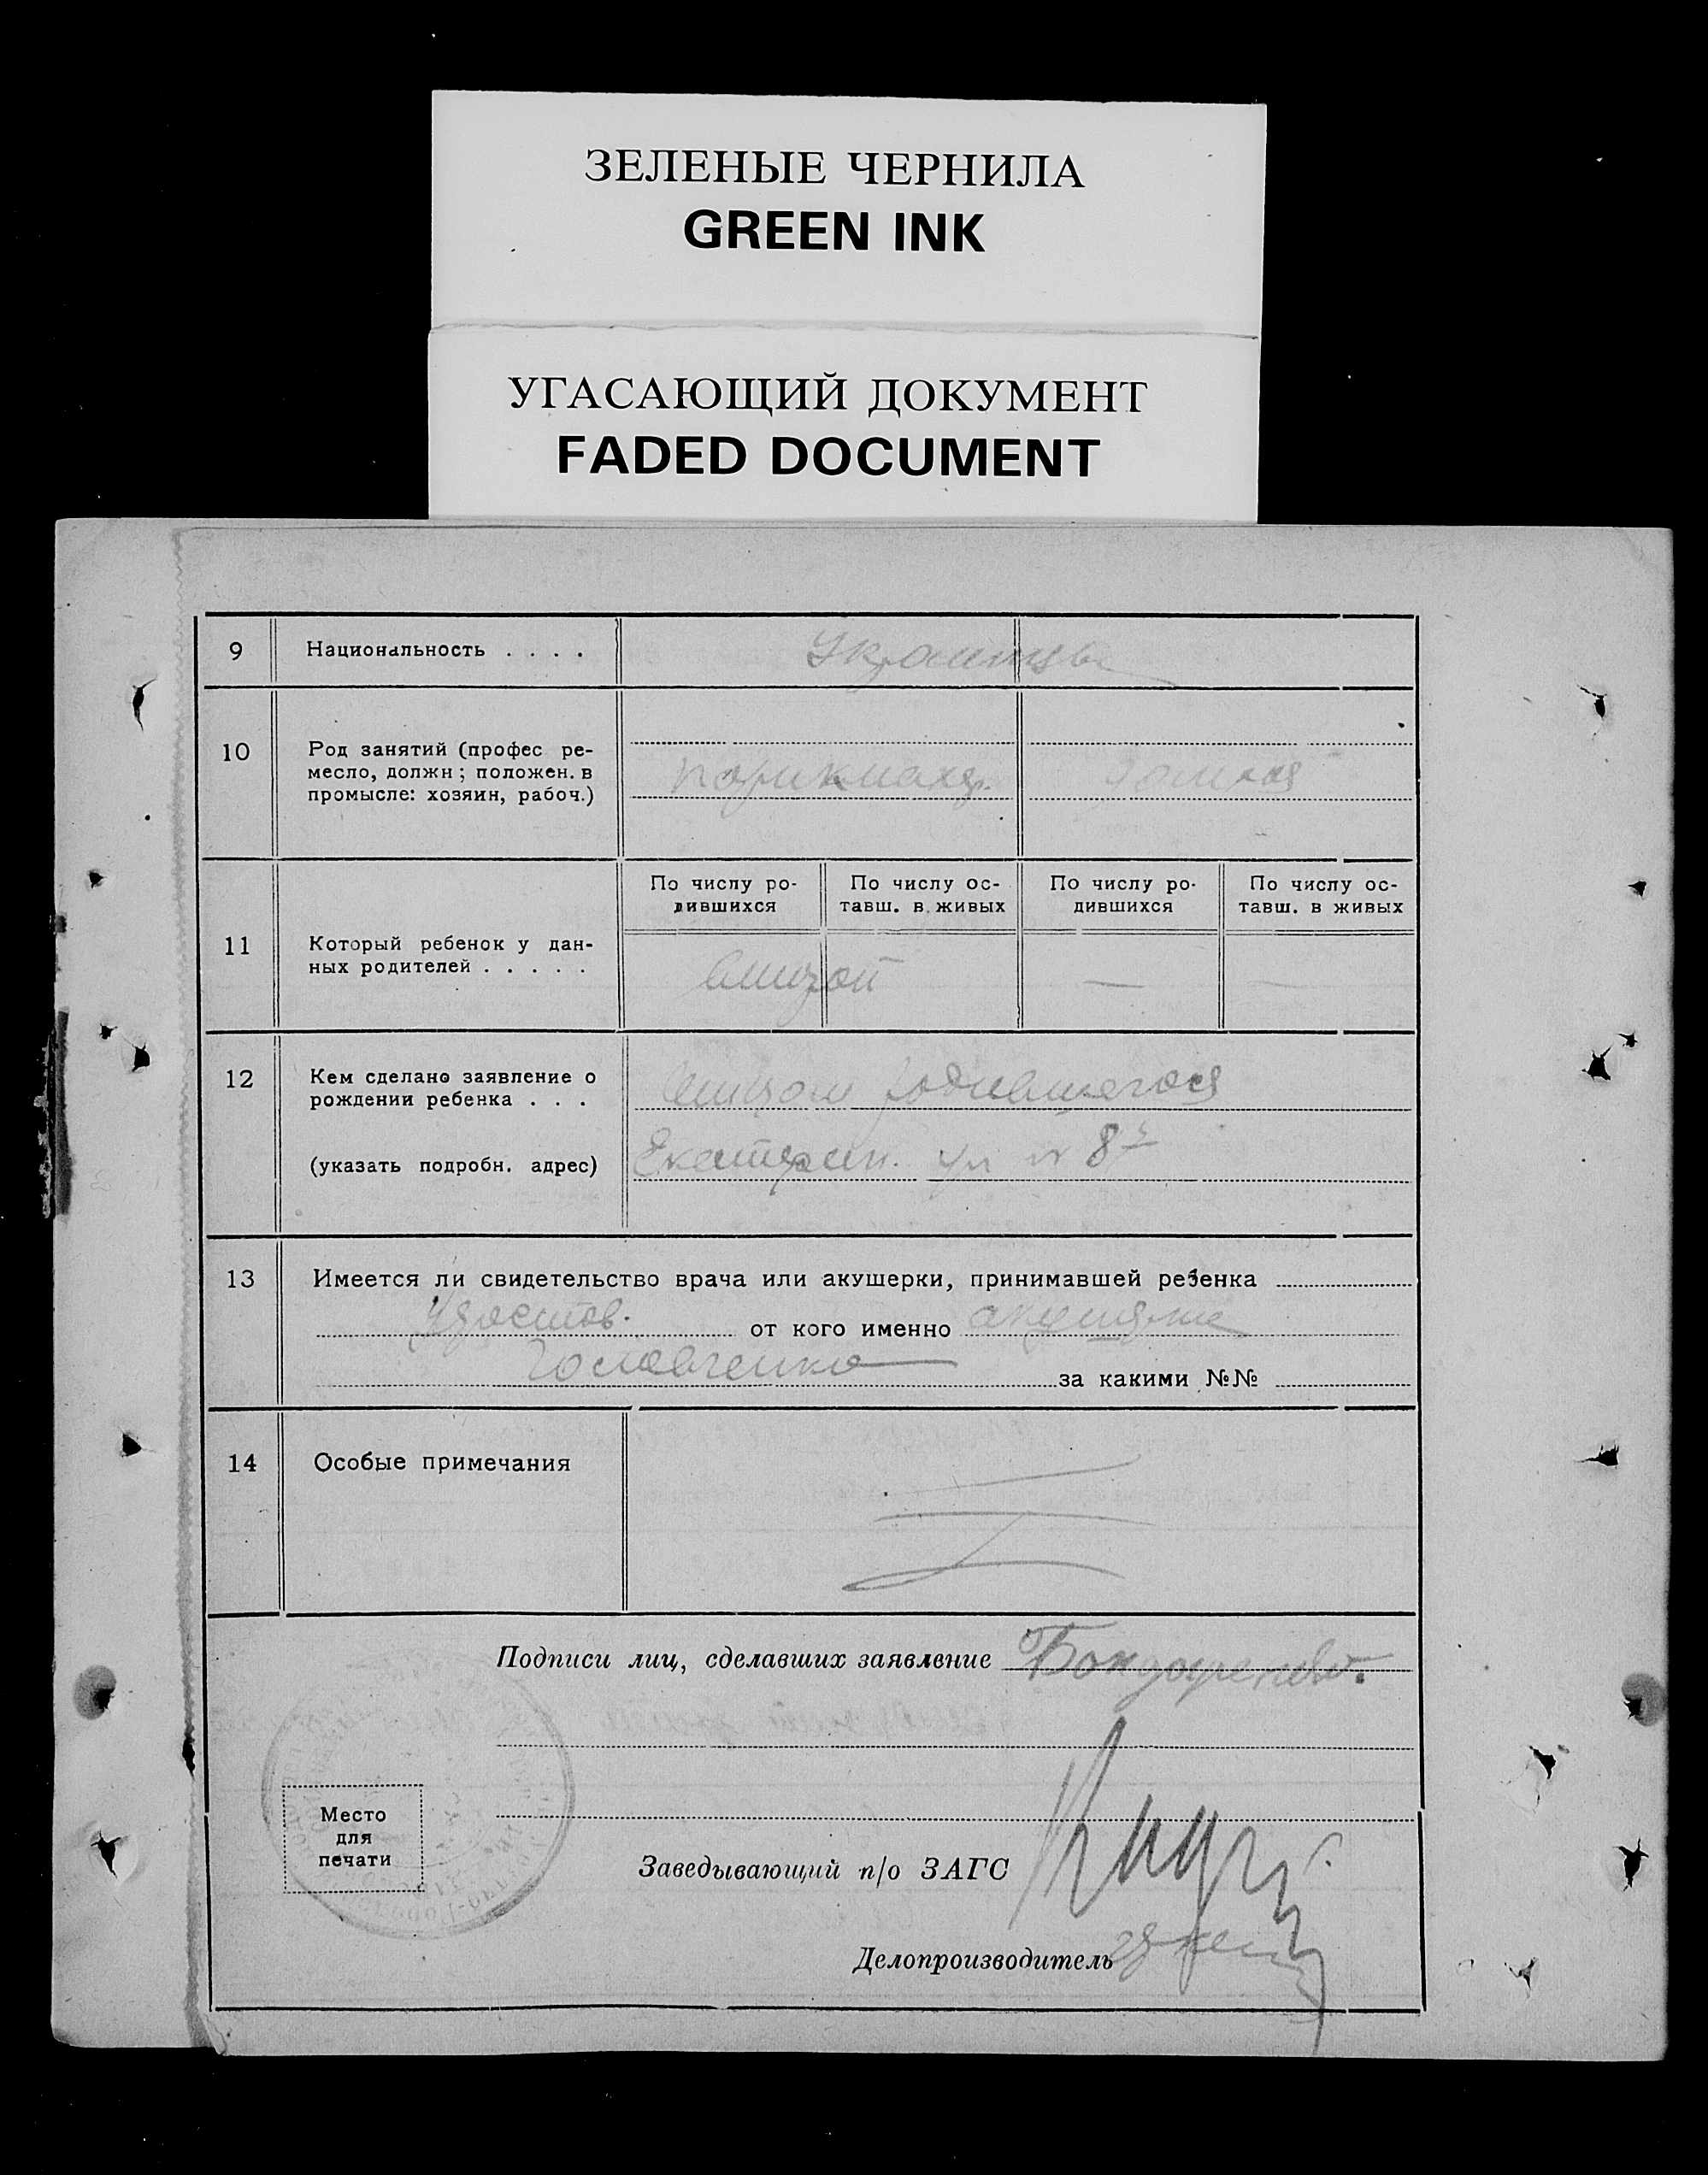 ЗЕЛЕНЫЕ ЧЕРНИЛА
GREEN INK
УГАСАЮЩИЙ ДОКУМЕНТ
FADED DOCUMENT
9 Национальность . . . . Украинцы
10 Род занятий (профес ре-
месло, должн; положен. в
промысле: хозяин, рабоч.)
парикмахер.
По числу ро-
дившихся
По числу ос-
тавш. в живых
По числу ро-
дившихся
По числу ос-
тавш. в живых
11 Который ребенок у дан-
ных родителей . . . . .
второй — —
12 Кем сделано заявление о
рождении ребенка . . .
отцом родившегося
(указать подробн. адрес) Екатерин. ул № 8
13 Имеется ли свидетельство врача или акушерки, принимавшей ребенка
Удостов. от кого именно акушерки
Головченко за какими №№
14 Особые примечания
Подписи лиц, сделавших заявление Бондаренко.
Место
для
печати
Заведывающий п/о ЗАГС
Делопроизводитель